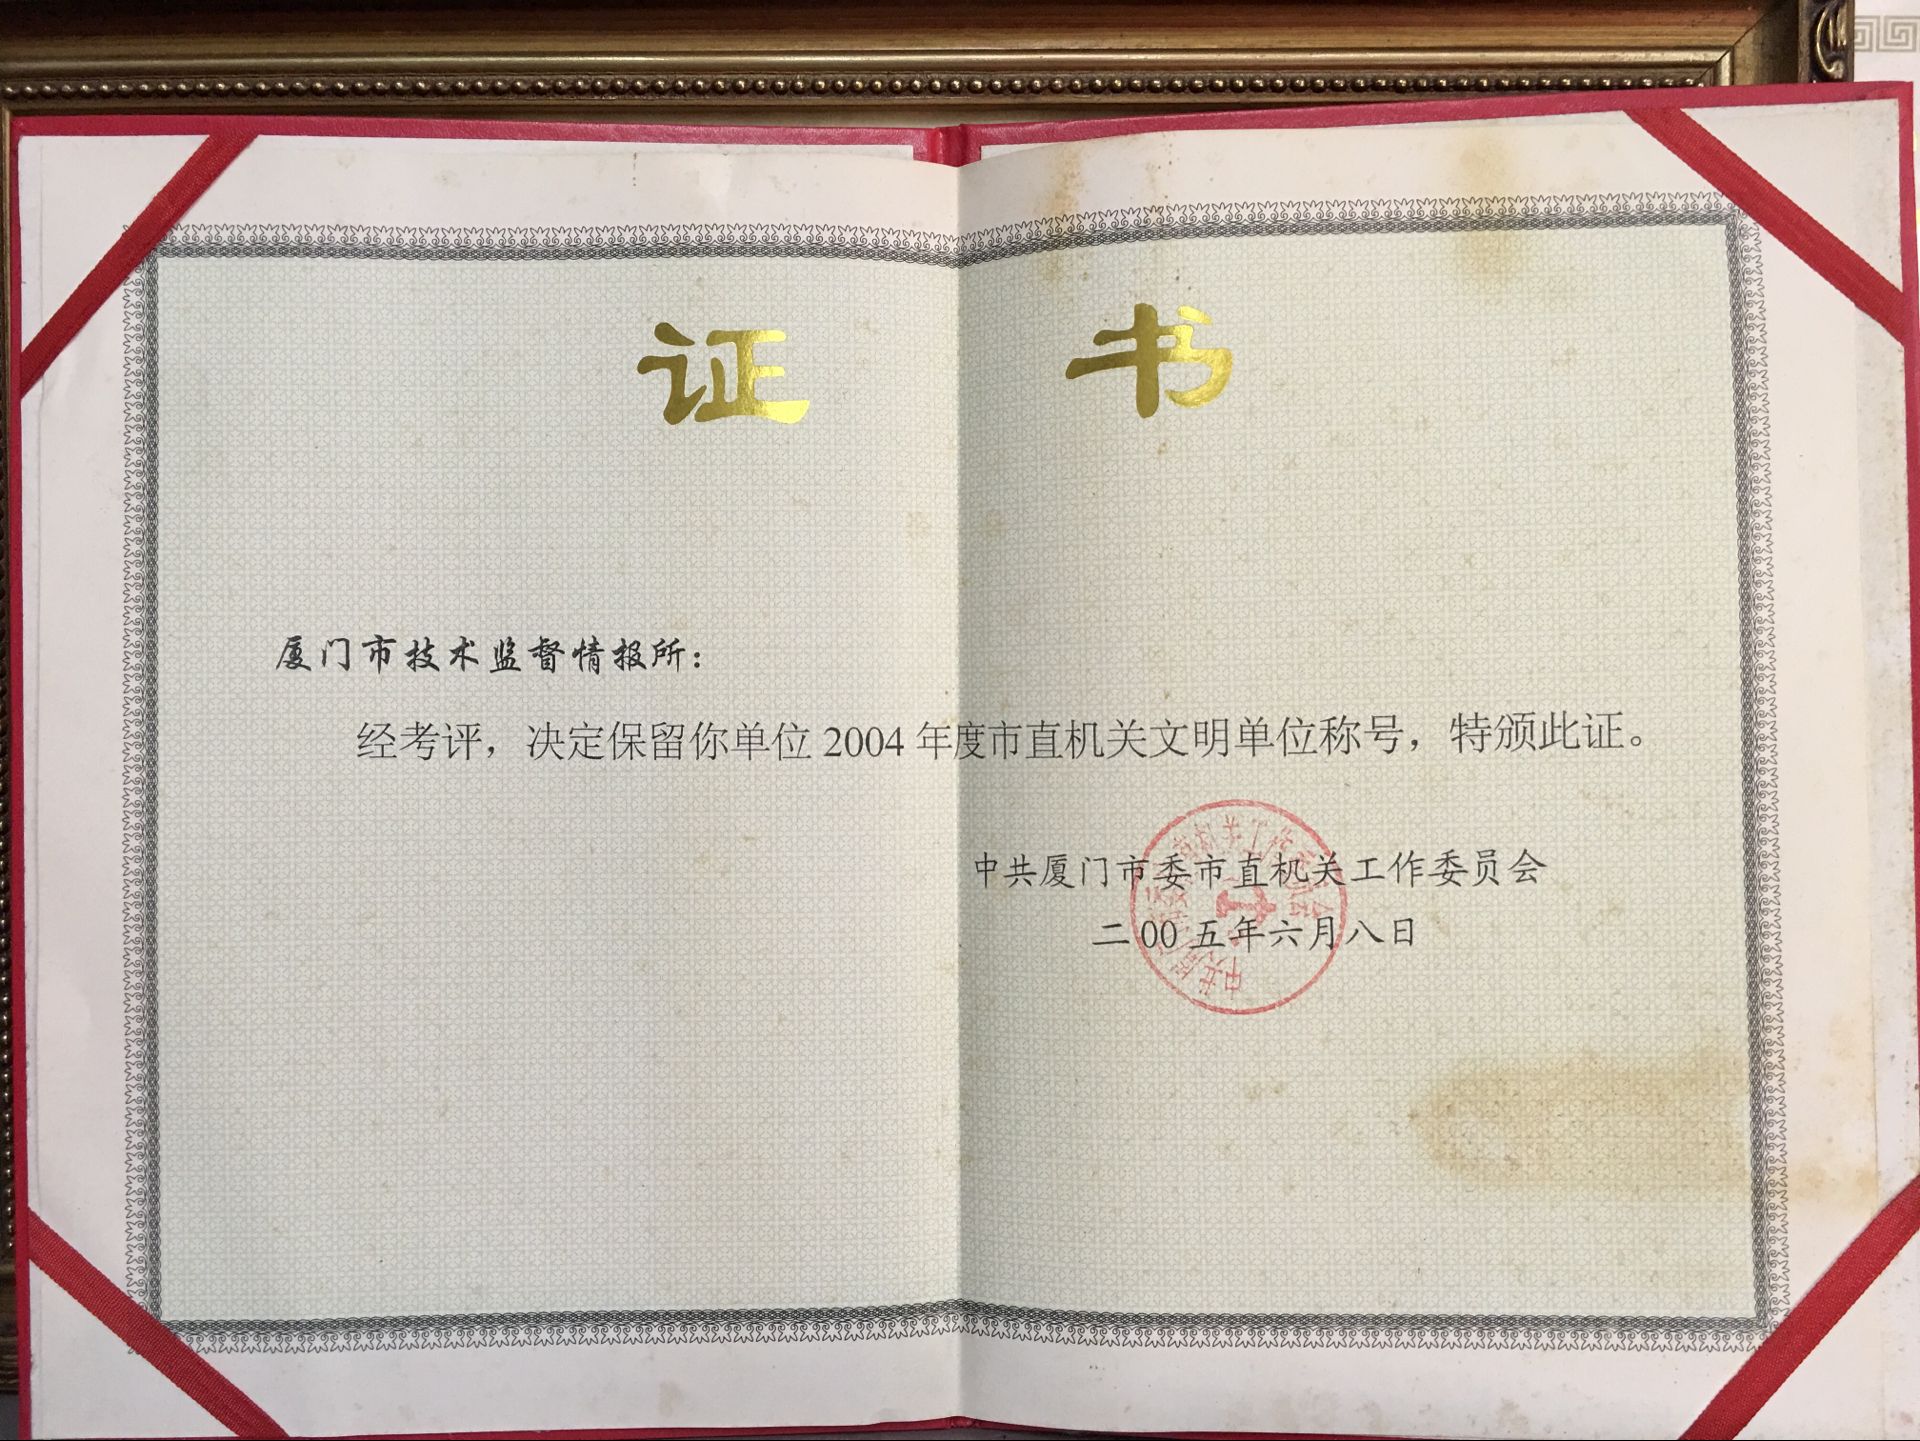 证 书
厦门市技术监督情报所：
经考评，决定保留你单位 2004 年度市直机关文明单位称号，特颁此证。
中共厦门市委市直机关工作委员会
二00五年六月八日